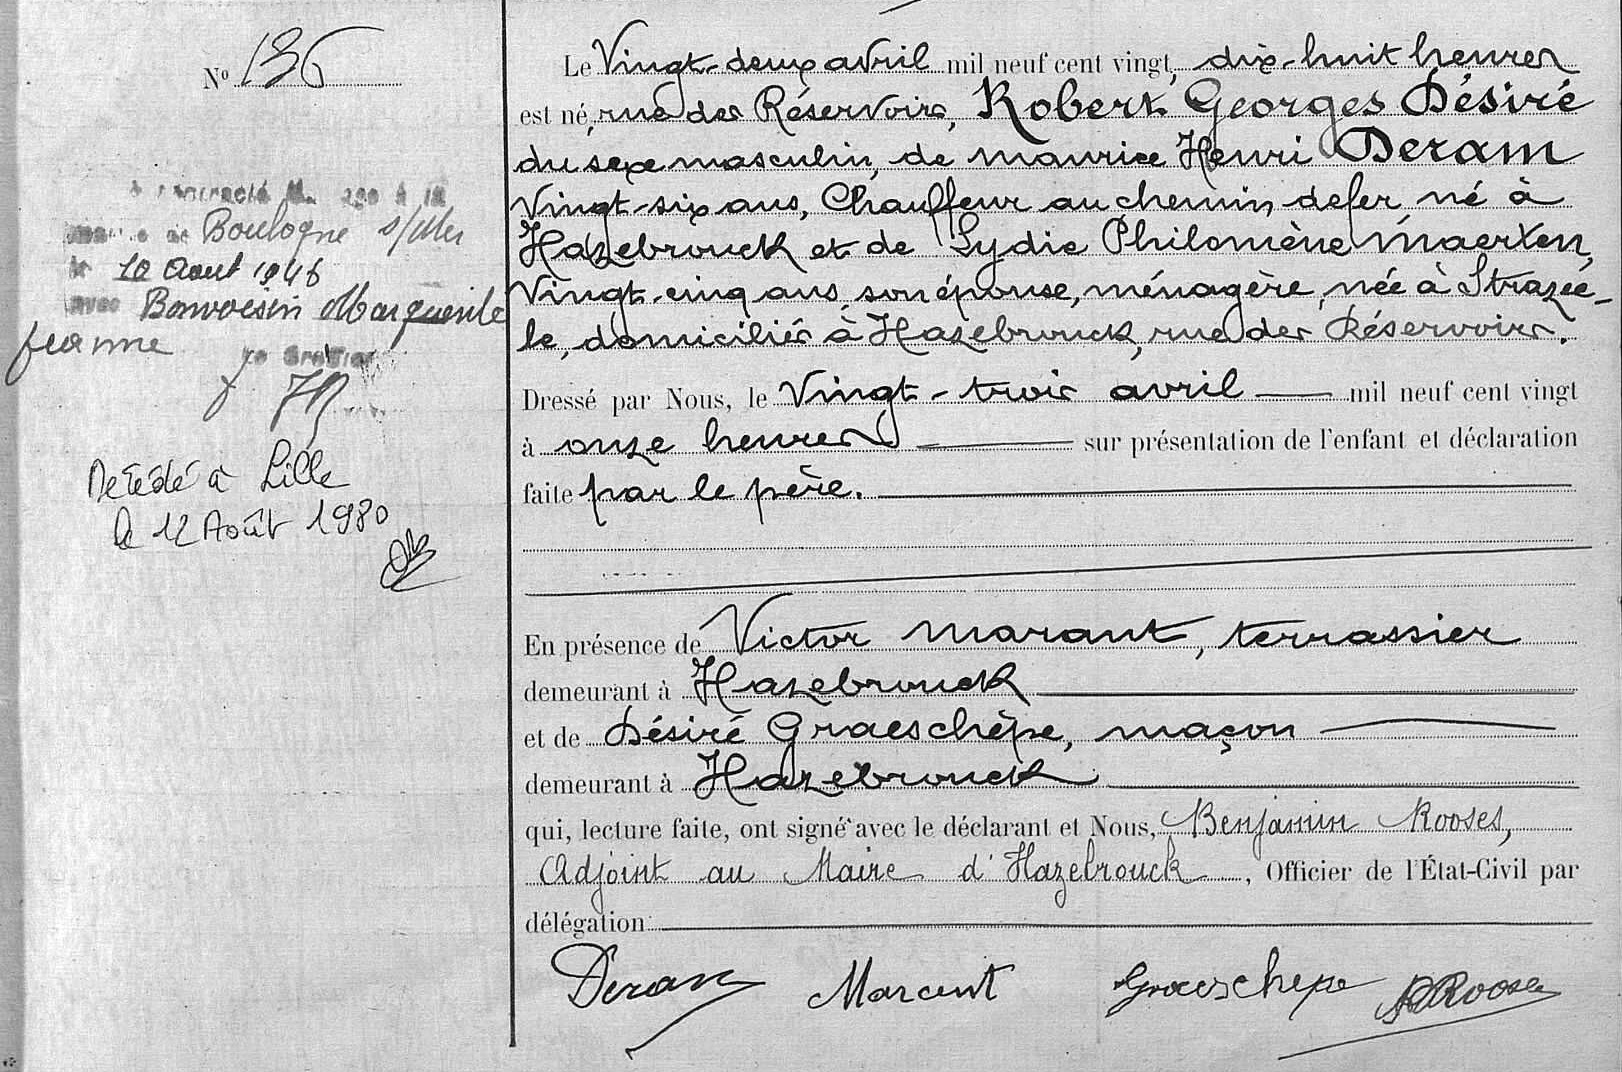 Nº 136
a contracté M age à la
Boulogne s/Mer
le 10 Aout 1946
avec Bonvoisin Marguerite
Jeanne
Le Greffier
Décédé à Lille
le 12 Août 1980
Le Vingt-deux avril mil neuf cent vingt, dix-huit heures
est né, rue des Réservoirs, Robert Georges Désiré
du sexe masculin, de Maurice Henri Deram
Vingt-six ans, Chauffeur au chemin de fer, né à
Hazebrouck et de Lydie Philomène Maerten,
Vingt-cinq ans, son épouse, ménagère, née à Strazee-
le, domiciliés à Hazebrouck, rue des Réservoirs.
Dressé par Nous, le Vingt-trois avril — mil neuf cent vingt
à onze heures — sur présentation de l'enfant et déclaration
faite par le père.
En présence de Victor Marant, terrassier
demeurant à Hazebrouck
et de Désiré Graeschêpe, maçon
demeurant à Hazebrouck
qui, lecture faite, ont signé avec le déclarant et Nous, Benjamin Rooses,
Adjoint au Maire d'Hazebrouck, Officier de l'État-Civil par
délégation
Deram Marant Graeschepe Rooses